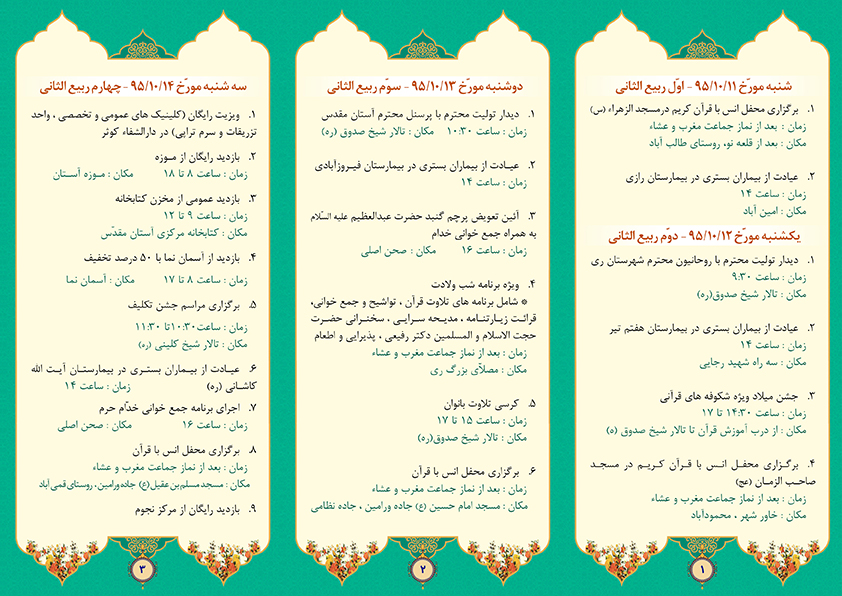 شنبه مورّخ ۹۵/۱۰/۱۱ - اوّل ربیع الثانی
۱. برگزاری محفل انس با قرآن کریم درمسجد الزهراء (س)
زمان : بعد از نماز جماعت مغرب و عشاء
مکان : بعد از قلعه نو، روستای طالب آباد
۲. عیادت از بیماران بستری در بیمارستان رازی
زمان : ساعت ۱۴
مکان : امین آباد
یکشنبه مورّخ ۹۵/۱۰/۱۲ - دوّم ربیع الثانی
۱. دیدار تولیت محترم با روحانیون محترم شهرستان ری
زمان : ساعت ۹:۳۰
مکان : تالار شیخ صدوق(ره)
۲. عیادت از بیماران بستری در بیمارستان هفتم تیر
زمان : ساعت ۱۴
مکان : سه راه شهید رجایی
۳. جشن میلاد ویژه شکوفه های قرآنی
زمان : ساعت ۱۴:۳۰ تا ۱۷
مکان : از درب آموزش قرآن تا تالار شیخ صدوق (ه)
۴. برگزاری محفل انس با قرآن کریم در مسجد
صاحب الزمان (عج)
زمان : بعد از نماز جماعت مغرب و عشاء
مکان : خاور شهر ، محمودآباد
۱
دوشنبه مورّخ ۹۵/۱۰/۱۳ - سوّم ربیع الثانی
۱. دیدار تولیت محترم با پرسنل محترم آستان مقدس
زمان : ساعت ۱۰:۳۰ مکان : تالار شیخ صدوق (ره)
۲. عیادت از بیماران بستری در بیمارستان فیروزآبادی
زمان : ساعت ۱۴
۳. آئین تعویض پرچم گنبد حضرت عبدالعظیم علیه السّلام
به همراه جمع خوانی خدام
زمان : ساعت ۱۶ مکان : صحن اصلی
۴. ویژه برنامه شب ولادت
* شامل برنامه های تلاوت قرآن ، تواشیح و جمع خوانی،
قرائت زیارتنامه ، مدیحه سرایی ، سخنرانی حضرت
حجت الاسلام و المسلمین دکتر رفیعی ، پذیرایی و اطعام
زمان : بعد از نماز جماعت مغرب و عشاء
مکان : مصلّای بزرگ ری
۵. کرسی تلاوت بانوان
زمان : ساعت ۱۵ تا ۱۷
مکان : تالار شیخ صدوق(ره)
۶. برگزاری محفل انس با قرآن
زمان : بعد از نماز جماعت مغرب و عشاء
مکان : مسجد امام حسین (ع) جاده ورامین ، جاده نظامی
۲
سه شنبه مورّخ ۹۵/۱۰/۱۴ - چهارم ربیع الثانی
۱. ویزیت رایگان (کلینیک های عمومی و تخصصی ، واحد
تزریقات و سرم تراپی) در دارالشفاء کوثر
۲. بازدید رایگان از موزه
زمان : ساعت ۸ تا ۱۸ مکان : موزه آستان
۳. بازدید عمومی از مخزن کتابخانه
زمان : ساعت ۹ تا ۱۲
مکان : کتابخانه مرکزی آستان مقدّس
۴. بازدید از آسمان نما با ۵۰ درصد تخفیف
زمان : ساعت ۸ تا ۱۷ مکان : آسمان نما
۵. برگزاری مراسم جشن تکلیف
زمان : ساعت۱۰:۳۰تا ۱۱:۳۰
مکان : تالار شیخ کلینی (ره)
۶. عیادت از بیماران بستری در بیمارستان آیت الله
کاشانی (ره) زمان : ساعت ۱۴
۷. اجرای برنامه جمع خوانی خدّام حرم
زمان : ساعت ۱۶ مکان : صحن اصلی
۸. برگزاری محفل انس با قرآن
زمان : بعد از نماز جماعت مغرب و عشاء
مکان : مسجد مسلم بن عقیل(ع) جاده ورامین، روستای قمی آباد
۹. بازدید رایگان از مرکز نجوم
۳